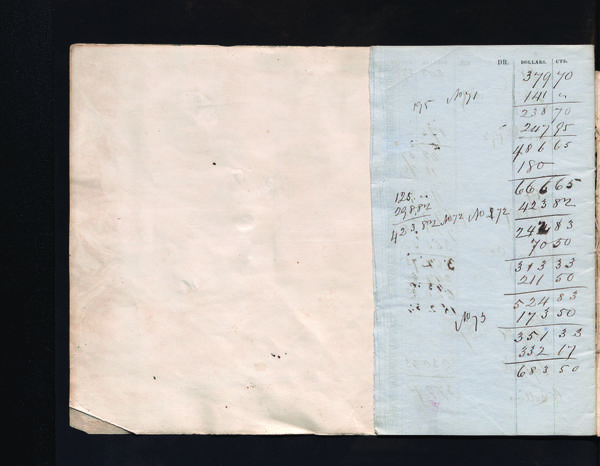 DR. DOLLARS. CTS.
379 70
141 "
195 No 71
238 70
247 95
486 65
180
666 65
125 "
423 82
298.82
423.82 No 72 No 72
242 83
70 50
313 33
211 50
524 83
173 50
No 73
351 33
332 17
683 50